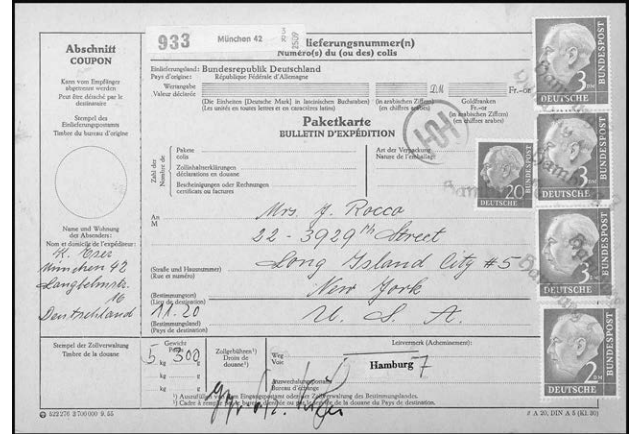 Abschnitt
COUPON
Kann vom Empfänger
abgetrennt werden
Peut être détaché par le
destinataire
Stempel des
Einlieferungspostamtes
Timbre du bureau d'origine
Name und Wohnung
des Absenders:
Nom et domicile de l'expéditeur:
München 42
16
Deutschland
Stempel der Zollverwaltung
Timbre de la douane
933
München 42
lieferungsnummer(n)
Numéro(s) du (ou des) colis
Einlieferungsland: Bundesrepublik Deutschland
Pays d'origine: République Fédérale d'Allemagne
Wertangabe
Valeur déclarée
DM
Fr.-or
(Die Einheiten [Deutsche Mark] in lateinischen Buchstaben)
(Les unités en toutes lettres et en caractères latins)
(in arabischen Ziffern)
(en chiffres arabes)
Goldfranken
Fr.-or
(in arabischen Ziffern)
(en chiffres arabes)
Paketkarte
BULLETIN D'EXPÉDITION
Zahl der
Nombre de
Pakete
colis
Zollinhaltserklärungen
déclarations en douane
Bescheinigungen oder Rechnungen
certificats ou factures
Art der Verpackung
Nature de l'emballage
An
M
Mrs. J. Rocco
22 - 39 29th Street
Long Island City #5
New York
U. S. A.
(Straße und Hausnummer)
(Rue et numéro)
(Bestimmungsort)
(Lieu de destination)
11.20
(Bestimmungsland)
(Pays de destination)
Gewicht
Poids
5 kg 300 g
kg g
kg g
Zollgebühren¹)
Droits de
douane¹)
Leitvermerk (Acheminement):
Weg
Voie
Hamburg 7
Auswechslungspostamt
Bureau d'échange
3
DEUTSCHE
BUNDESPOST
3
DEUTSCHE
BUNDESPOST
20
DEUTSCHE
BUNDESPOST
3
DEUTSCHE
BUNDESPOST
2 DM
DEUTSCHE
BUNDESPOST
Hamburg
522 276 3 700 000 9. 55
A 20, DIN A 5 (Kl. 30)